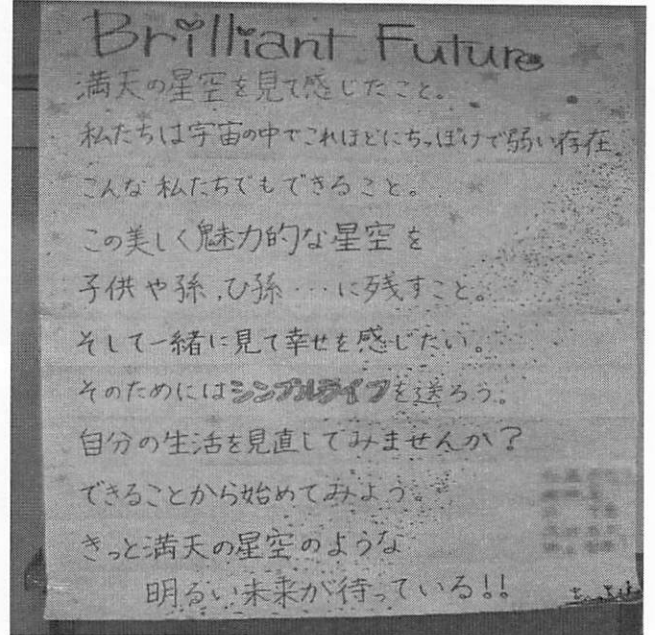 Brilliant Future
満天の星空を見て感じたこと。
私たちは宇宙の中でこれほどにちっぽけで弱い存在。
こんな私たちでもできること。
この美しく魅力的な星空を
子供や孫,ひ孫…に残すこと。
そして一緒に見て幸せを感じたい。
そのためにはシンプルライフを送ろう。
自分の生活を見直してみませんか?
できることから始めてみよう。
きっと満天の星空のような
明るい未来が待っている!!